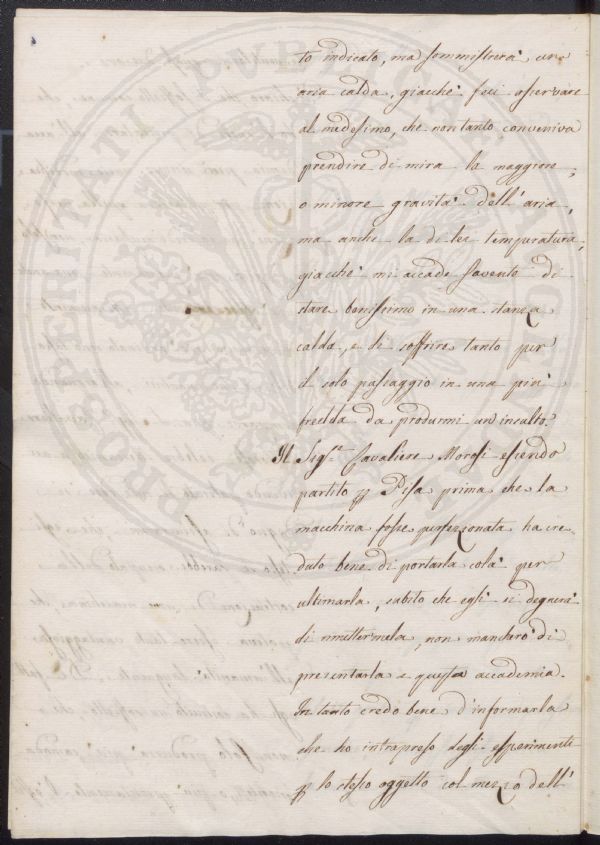 to indicato, ma somministrerà un
aria calda, giacchè feci osservare
al medesimo, che non tanto conveniva
prendere di mira la maggiore,
o minore gravità dell'aria,
ma anche la di lei temperatura,
giacchè mi accade sovente di
stare benissimo in una stanza
calda, e di soffrire tanto per
il solo passaggio in una più
fredda da produrmi un insulto.
Il Sig.re Cavaliere Morosi essendo
partito p Pisa prima che la
macchina fosse perfezionata ha cre
duto bene di portarla colà per
ultimarla, subito che egli si degnerà
di rimettermela, non mancherò di
presentarla a questa accademia.
In tanto credo bene d'informarla
che ho intrapreso degli esperimenti
p lo stesso oggetto col mezzo dell'
PROSPERITATI PVBLICAE